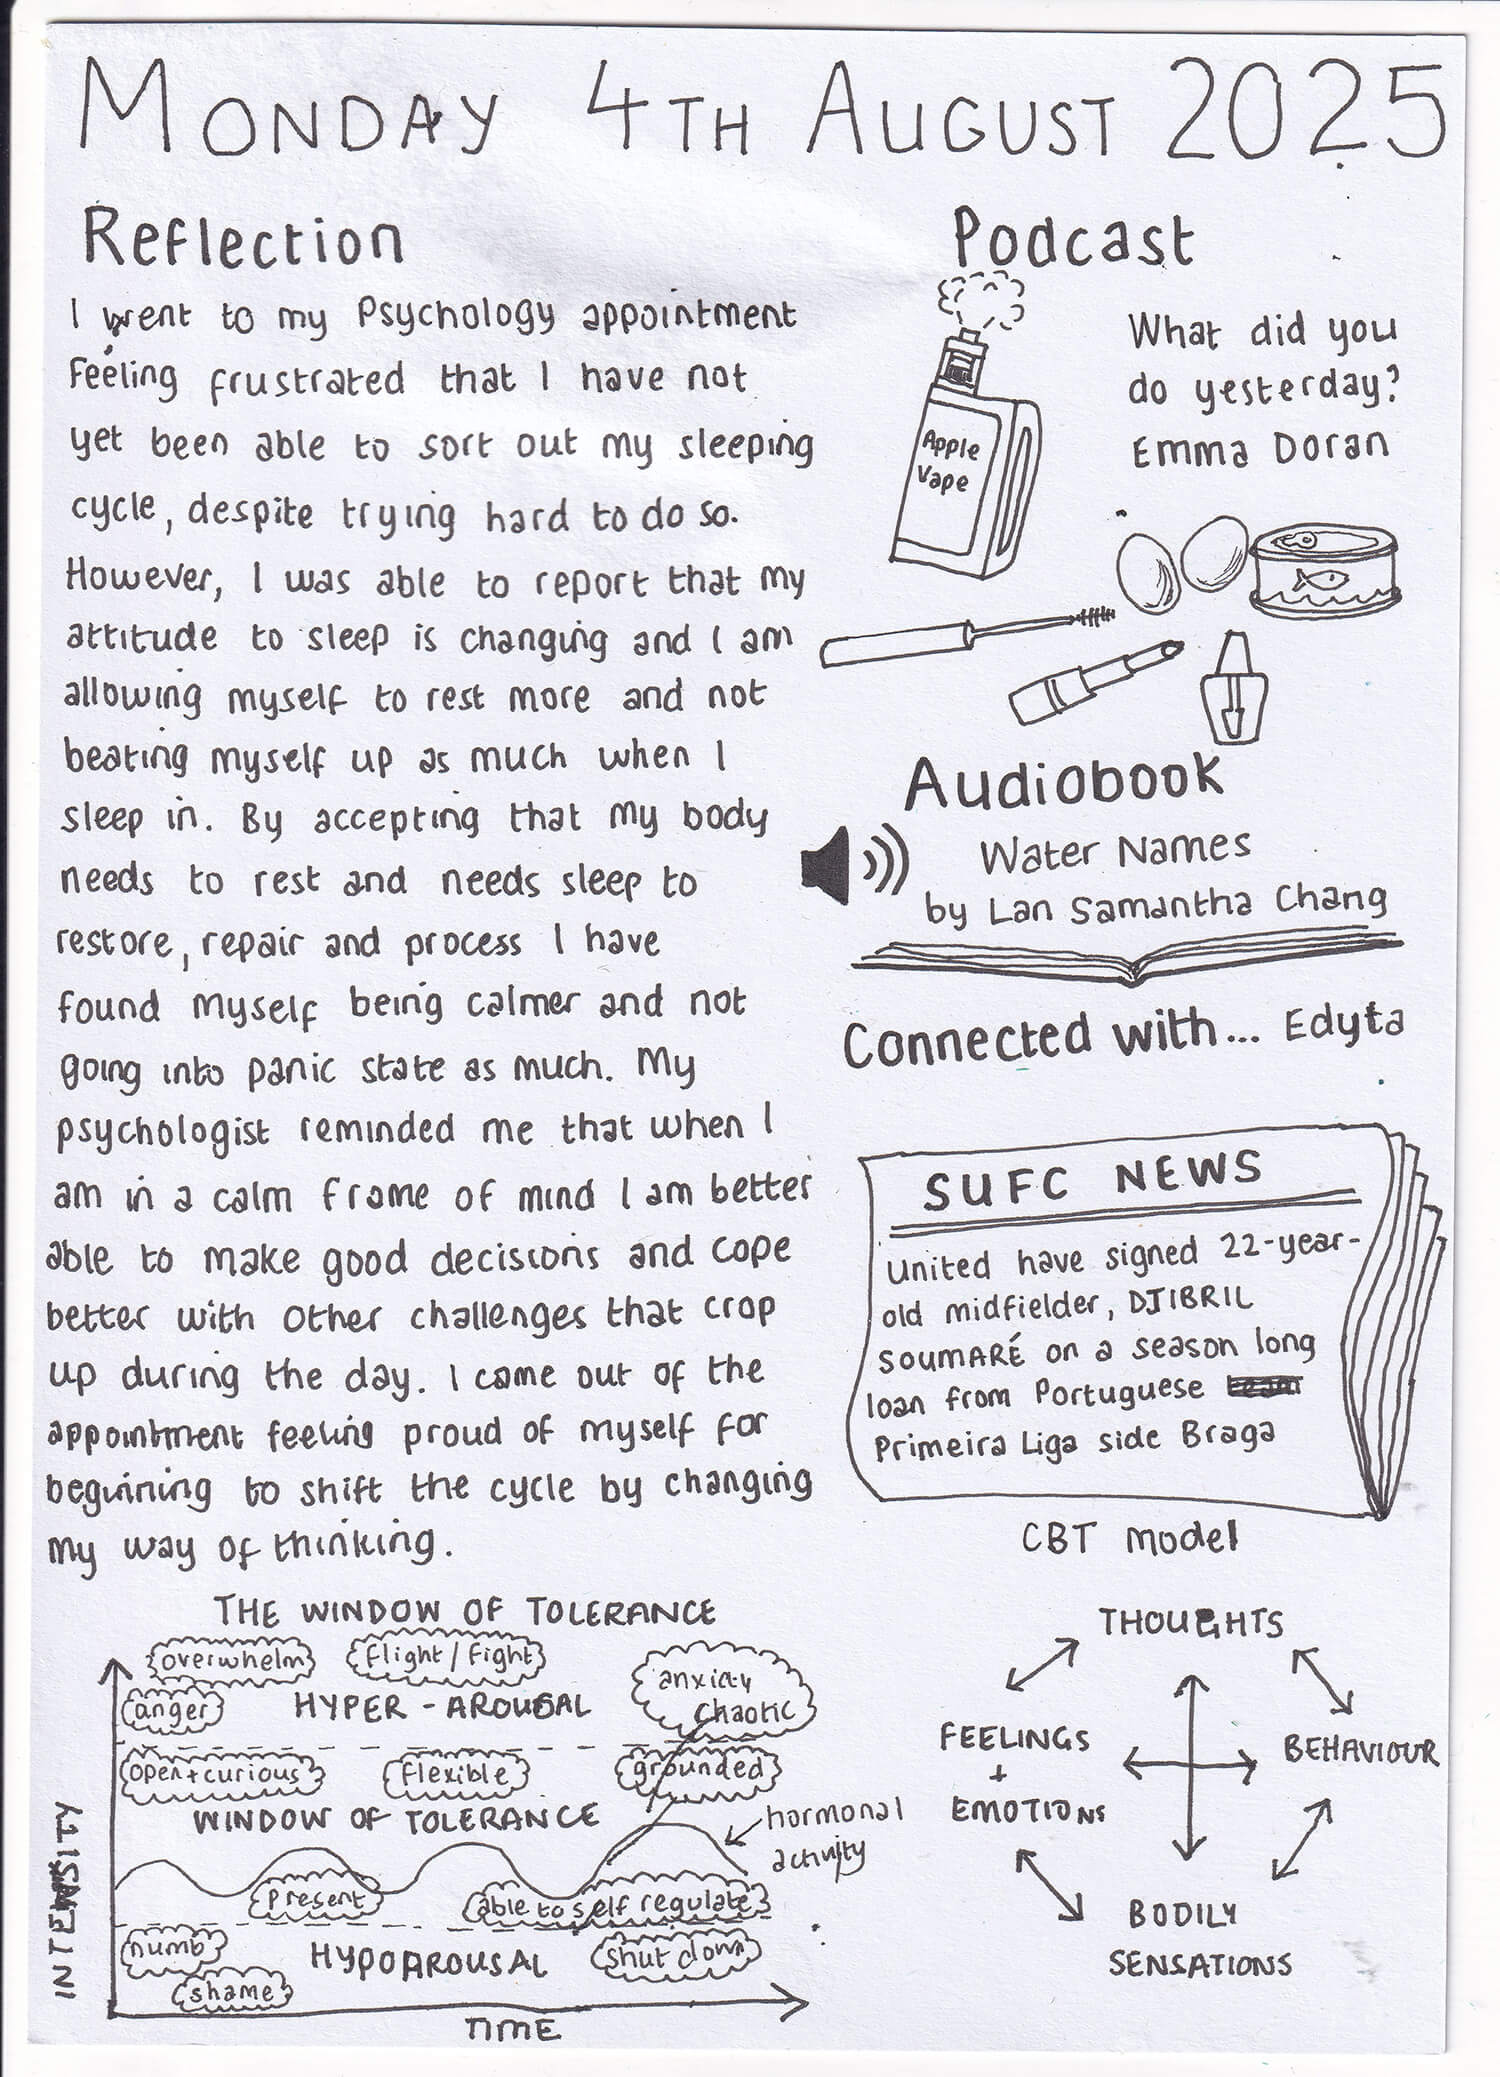 MONDAY 4TH AUGUST 2025
Reflection
I went to my Psychology appointment
Feeling frustrated that I have not
yet been able to sort out my sleeping
cycle, despite trying hard to do so.
However, I was able to report that my
attitude to sleep is changing and I am
allowing myself to rest more and not
beating myself up as much when I
sleep in. By accepting that my body
needs to rest and needs sleep to
restore, repair and process I have
found myself being calmer and not
going into panic state as much. My
psychologist reminded me that when I
am in a calm frame of mind I am better
able to make good decisions and cope
better with other challenges that crop
up during the day. I came out of the
appointment feeling proud of myself for
beginning to shift the cycle by changing
my way of thinking.
Podcast
What did you
do yesterday?
Emma Doran
Apple
Vape
Audiobook
Water Names
by Lan Samantha Chang
Connected with... Edyta
SUFC NEWS
United have signed 22-year-
old midfielder, DJIBRIL
SOUMARÉ on a season long
loan from Portuguese
Primeira Liga side Braga
THE WINDOW OF TOLERANCE
overwhelm
flight / fight
anxiety
chaotic
anger
HYPER - AROUSAL
open + curious
flexible
grounded
WINDOW OF TOLERANCE
hormonal
activity
present
able to self regulate
numb
HYPOAROUSAL
shut down
shame
INTENSITY
TIME
CBT Model
THOUGHTS
FEELINGS
+
EMOTIONS
BEHAVIOUR
BODILY
SENSATIONS